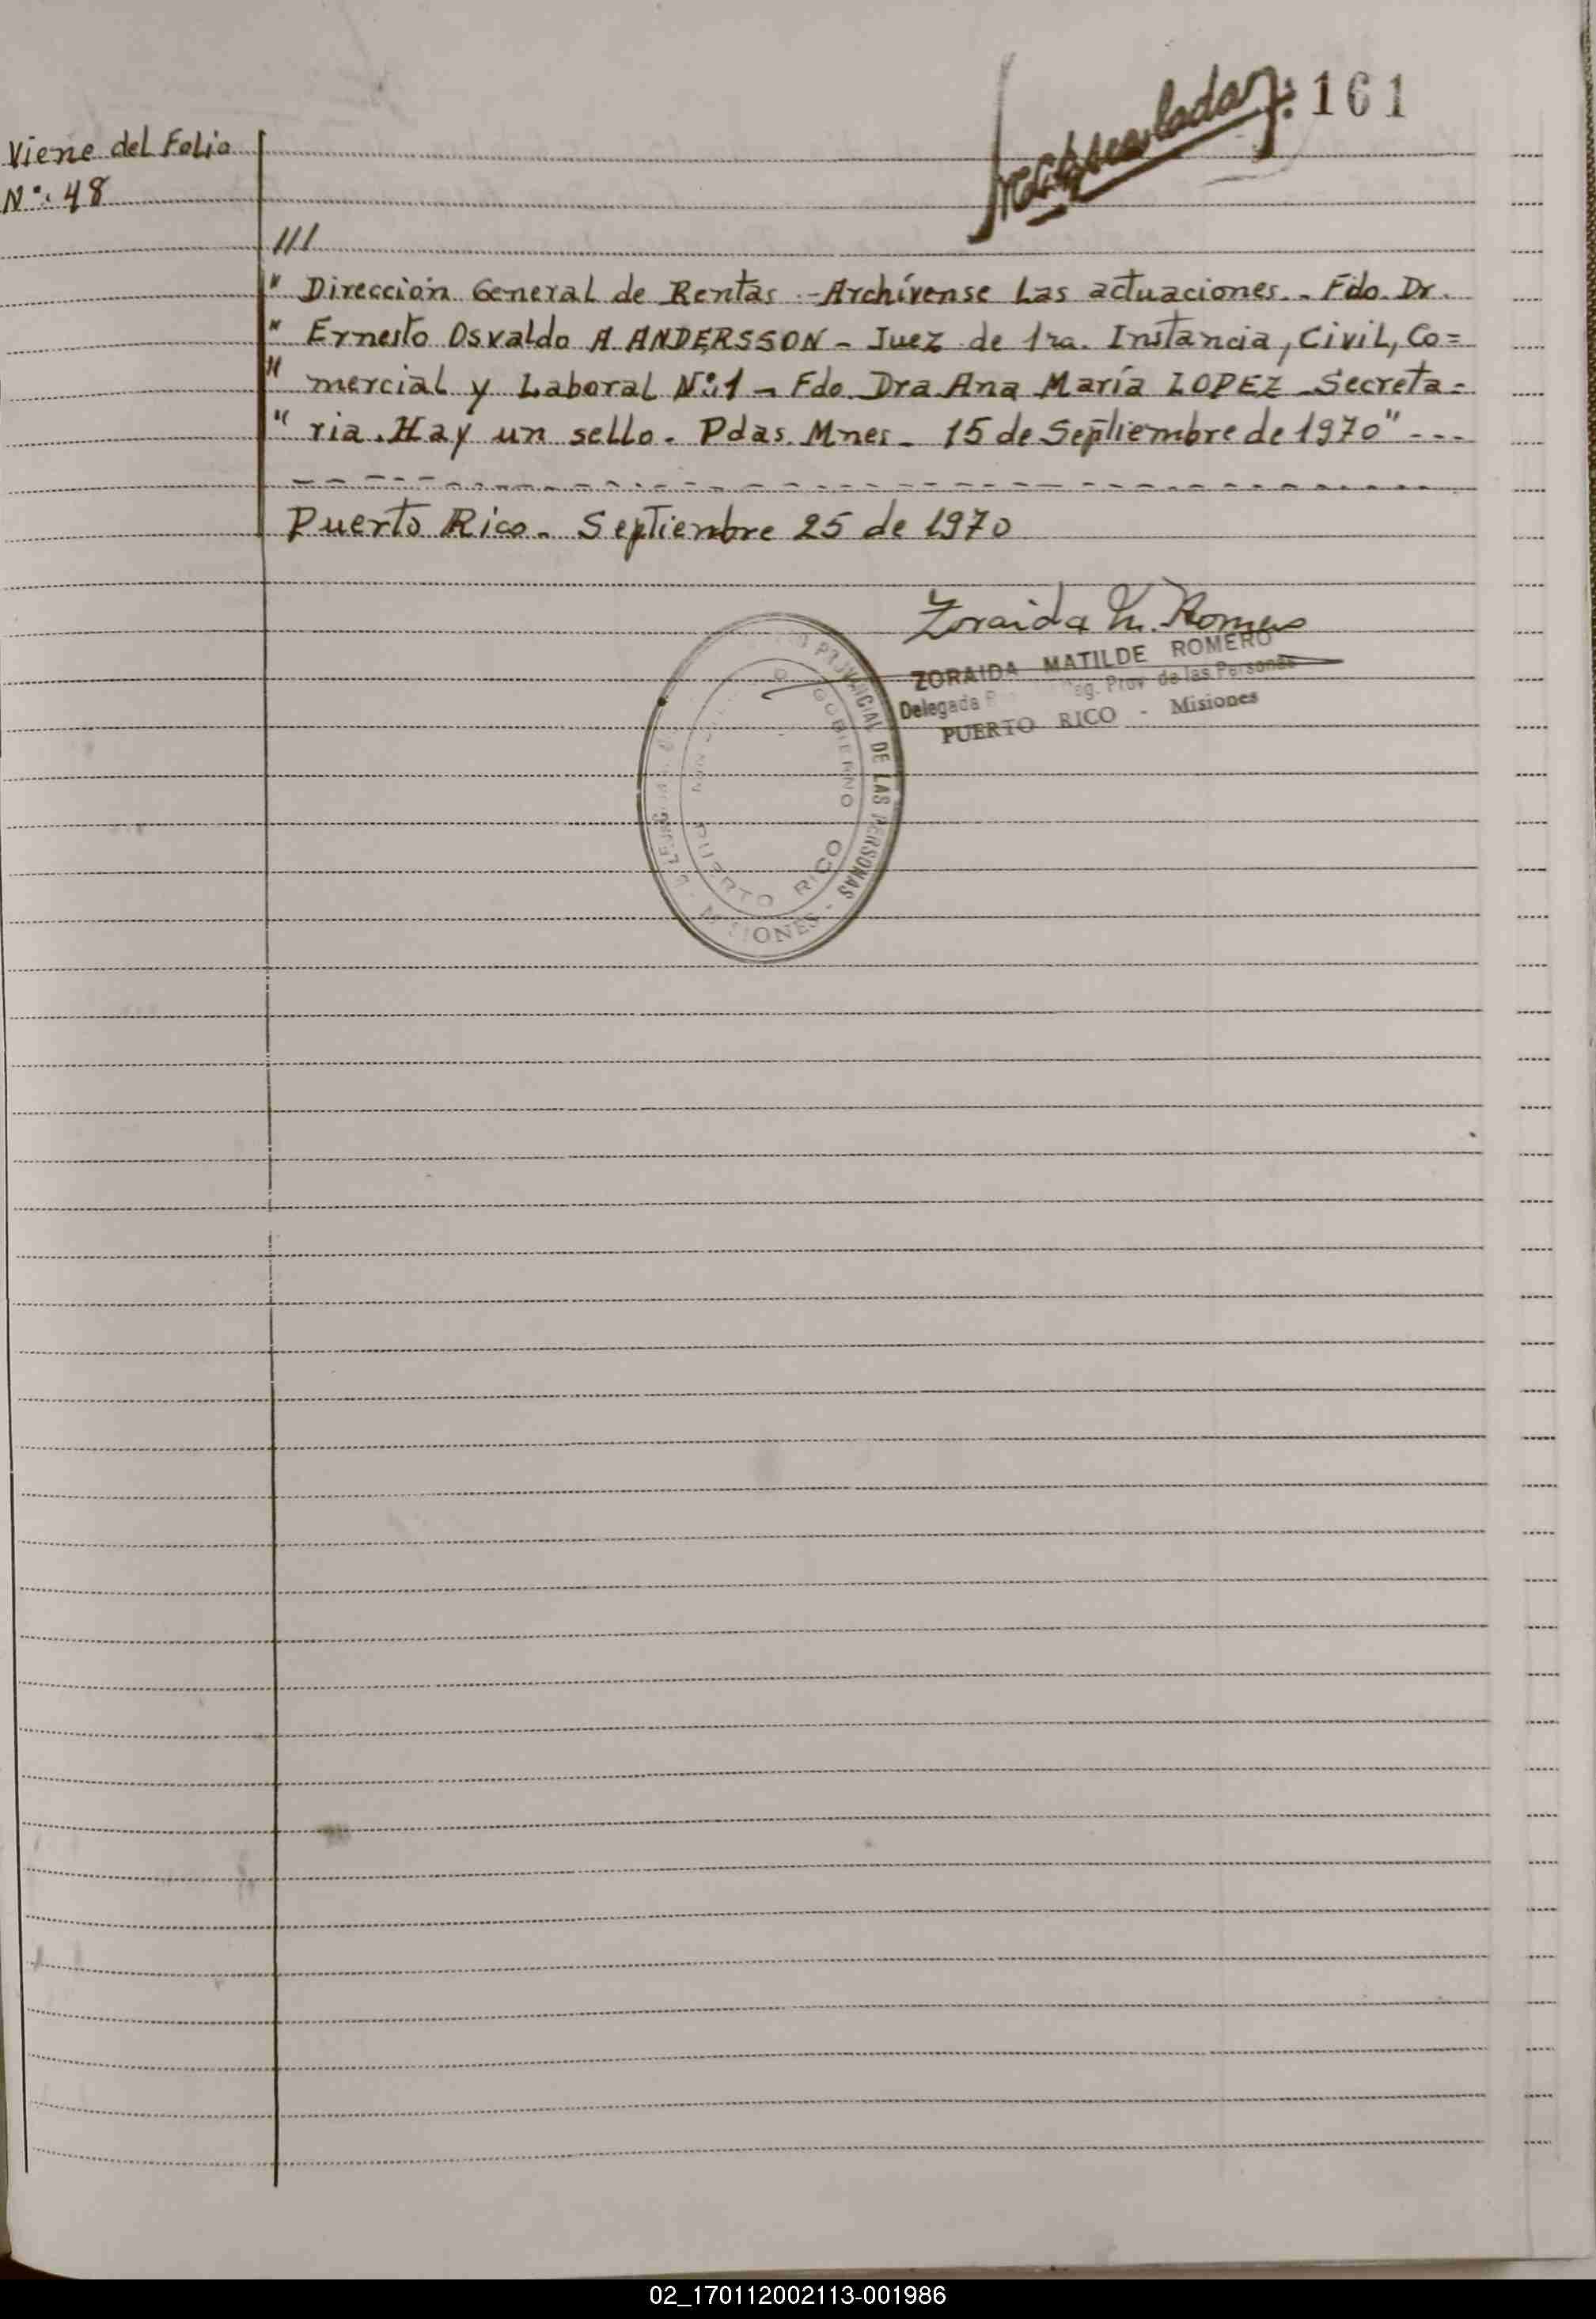 161
Viene del Folio
Nº: 48
///
" Dirección General de Rentas.- Archívense Las actuaciones.- Fdo. Dr.
" Ernesto Osvaldo A ANDERSSON - Juez de 1ra. Instancia, Civil, Co=
" mercial y Laboral Nº:1 - Fdo. Dra Ana María LOPEZ - Secreta=
" ria. Hay un sello. Pdas. Mnes - 15 de Septiembre de 1970" ---
Puerto Rico. Septiembre 25 de 1970
Zoraida M. Romero
ZORAIDA MATILDE ROMERO
Delegada Reg. Prov. de las Personas
PUERTO RICO - Misiones
PROVINCIAL DE LAS PERSONAS - MISIONES
GOBIERNO
PUERTO RICO
02_170112002113-001986